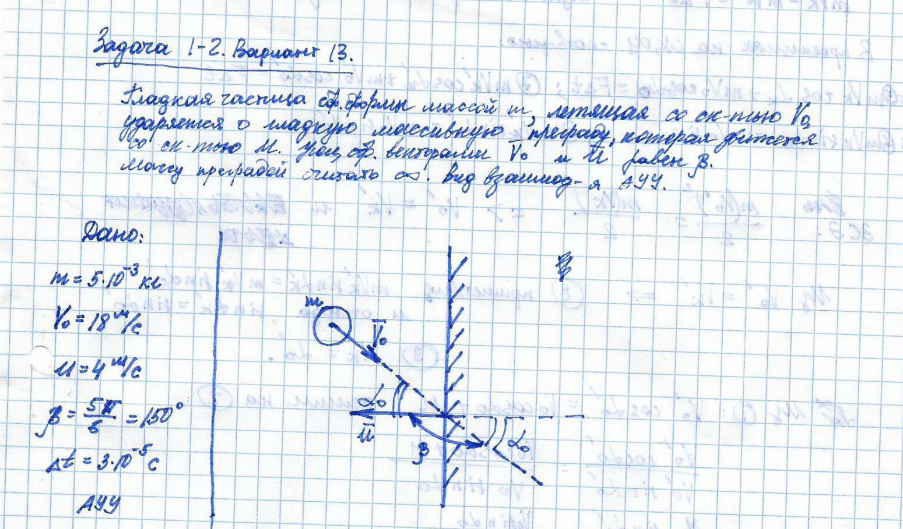 Задача 1-2. Вариант 13.
Гладкая частица сф. формы массой m, летящая со ск-тью V₀,
ударяется о гладкую массивную преграду, которая движется
со ск-тью U. Угол ф. векторами V̅₀ и U̅ равен β.
Массу преградой считать ∞. Вид взаимод-я АУУ.
Дано:
m = 5·10⁻³ кг
V₀ = 18 м/с
U = 4 м/с
β = 5π/6 = 150°
Δt = 3·10⁻⁵ с
АУУ
m
V̅₀
α₀
U̅
β
α₀